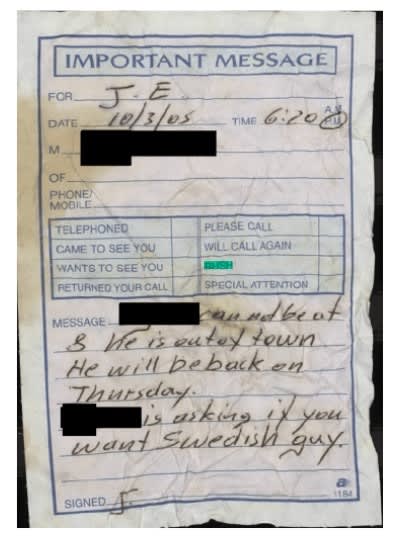 IMPORTANT MESSAGE
FOR J.E
DATE 10/3/05 TIME 6:20 A.M. P.M.
M
OF
PHONE/
MOBILE
TELEPHONED PLEASE CALL
CAME TO SEE YOU WILL CALL AGAIN
WANTS TO SEE YOU RUSH
RETURNED YOUR CALL SPECIAL ATTENTION
MESSAGE can not be at
8 he is out of town
He will be back on
Thursday.
is asking if you
want Swedish guy.
a
1184
SIGNED J.